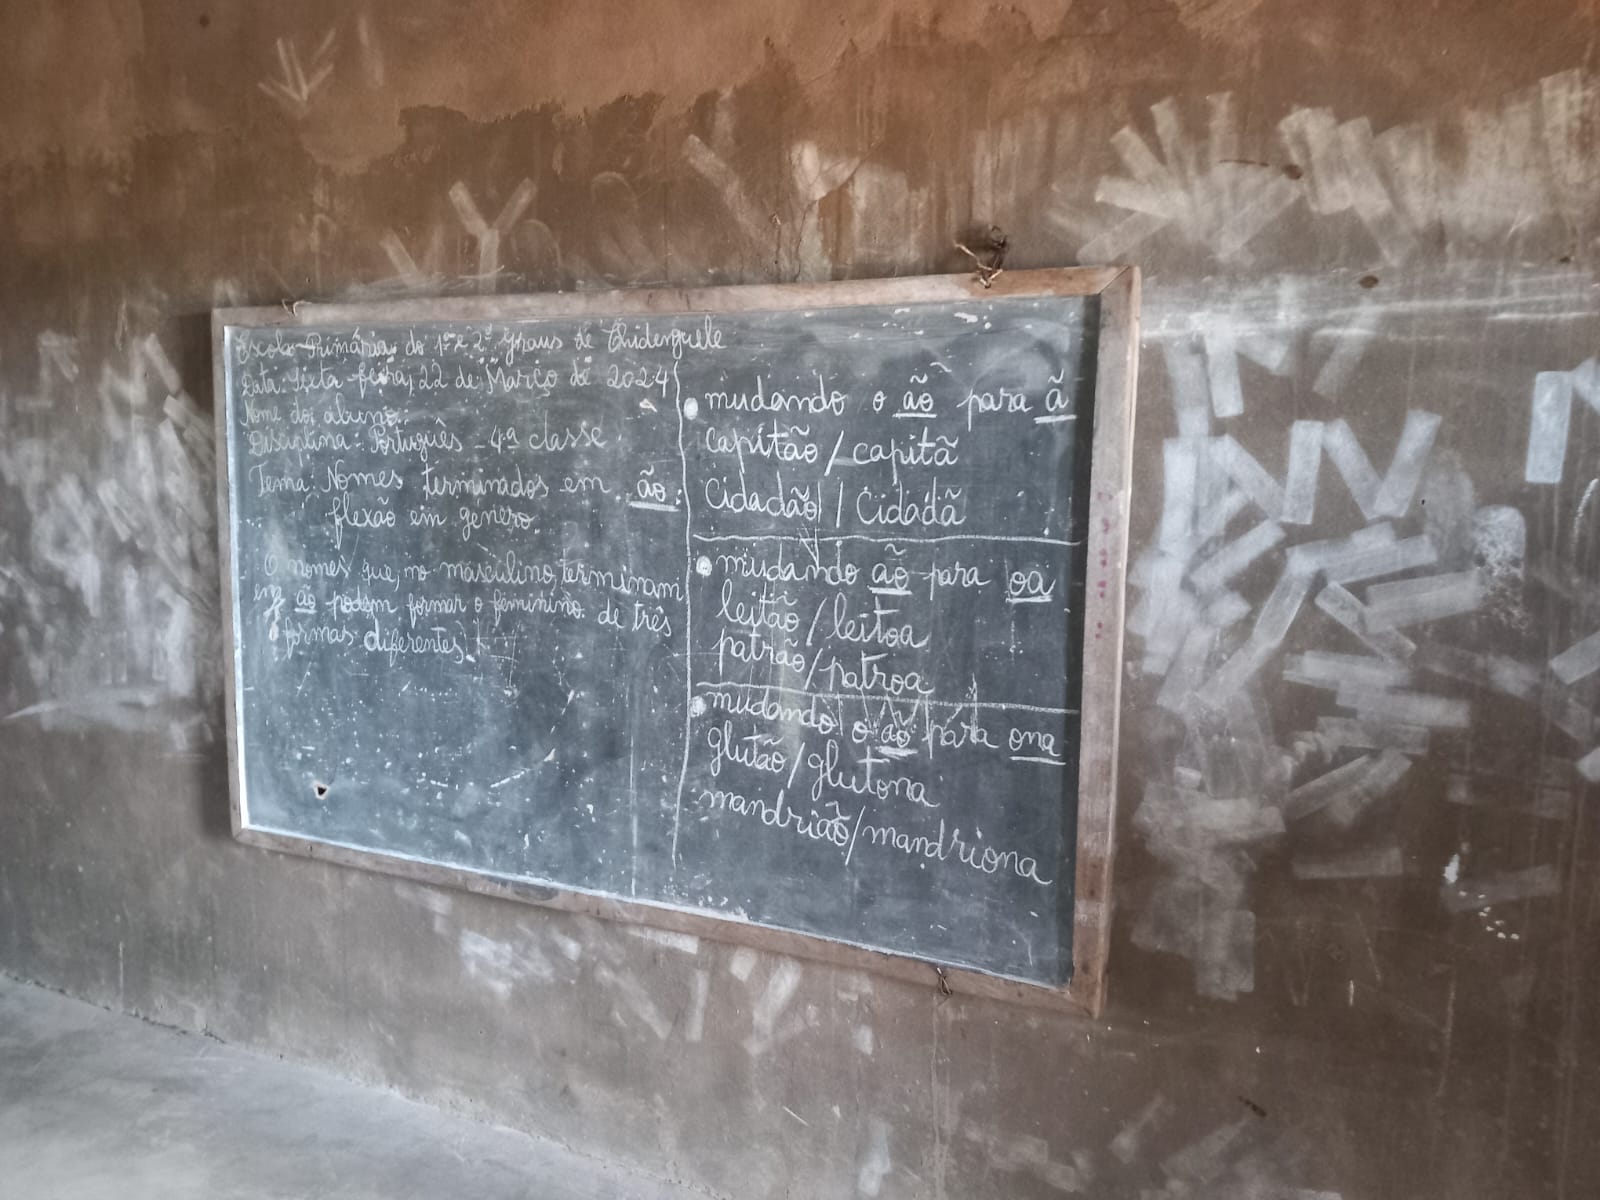 Escola Primária do 1º e 2º graus de Chidenguele
Data: Sexta-feira, 22 de Março de 2024
Nome do aluno:
Disciplina: Português - 4ª classe
Tema: Nomes terminados em ão:
flexão em género.
O nomes que, no masculino, terminam
em ão podem formar o feminino de três
formas diferentes:
mudando o ão para ã
capitão/capitã
Cidadão/Cidadã
mudando ão para oa
leitão/leitoa
patrão/patroa
mudando o ão para ona
glutão/glutona
mandrião/mandriona